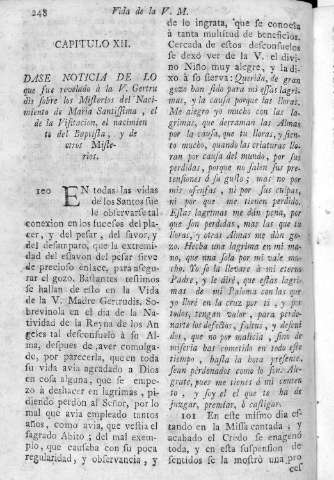 248
Vida de la V. M.
CAPITULO XII.
DASE NOTICIA DE LO
que fue revelado à la V. Gertru
dis sobre los Misterios del Naci-
miento de Maria Santissima, el
de la Visitacion, el nacimien
to del Baptista, y de
otros Miste-
rios.
100 EN todas las vidas
de los Santos sue
le observarse tal
conexion en los sucesos del pla-
cer, y del pesar, del favor, y
del desamparo, que la extremi-
dad del eslavon del pesar sirve
de precioso enlace, para asegu-
rar el gozo. Bastantes testimos
se hallan de esto en la Vida
de la V. Madre Gertrudis. So-
brevinola en el dia de la Na-
tividad de la Reyna de los An
geles tal desconsuelo à su Al-
ma, despues de aver comulga-
do, por parecerla, que en toda
su vida avia agradado à Dios
en cosa alguna, que se empe-
zò à deshacer en lagrimas, pi-
diendo perdon al Señor, por lo
mal que avia empleado tantos
años, como avia, que vestia el
sagrado Abito; del mal exem-
plo, que causaba con su poca
regularidad, y observancia, y
de lo ingrata, que se conocia
à tanta multitud de beneficios.
Cercada de estos desconsuelos
se dexò ver de la V. el divi
no Niño muy alegre, y la di-
xo à su sierva: Querida, de gran
gozo han sido para mi essas lagri-
mas, y la causa porque las lloras.
Me alegro yo mucho con las la-
grimas, que derraman las Almas
por la causa, que tu lloras, y sien-
to mucho, quando las criaturas llo-
ran por causa del mundo, por sus
perdidas, porque no salen sus pre-
tensiones à su gusto; mas no por
mis ofensas, ni por sus culpas,
ni por que me tienen perdido.
Estas lagrimas me dàn pena, por
que son perdidas, mas las que tu
lloras, y otras Almas me dàn go-
zo. Hecha una lagrima en mi ma-
no, que una sola por mi vale mu-
cho. Yo se la llevarè à mi eterno
Padre, y le dirè, que essas lagri-
mas de mi Paloma con las que
yo llorè en la cruz por ti, y por
todos, tengan valor, para perdo-
narte los defectos, faltas, y descui
dos, que no por malicia, sino de
miseria has cometido en todo este
tiempo, hasta la hora presente.
Sean perdonados como lo son: Ale-
grate, pues me tienes à mi conten
to, y soy el el que te ha de
juzgar, premiar, ò castigar.
101 En este mismo dia es-
tando en la Missa cantada, y
acabado el Credo se enagenò
toda, y en esta suspension de
sentidos se la mostrò una pro
ces